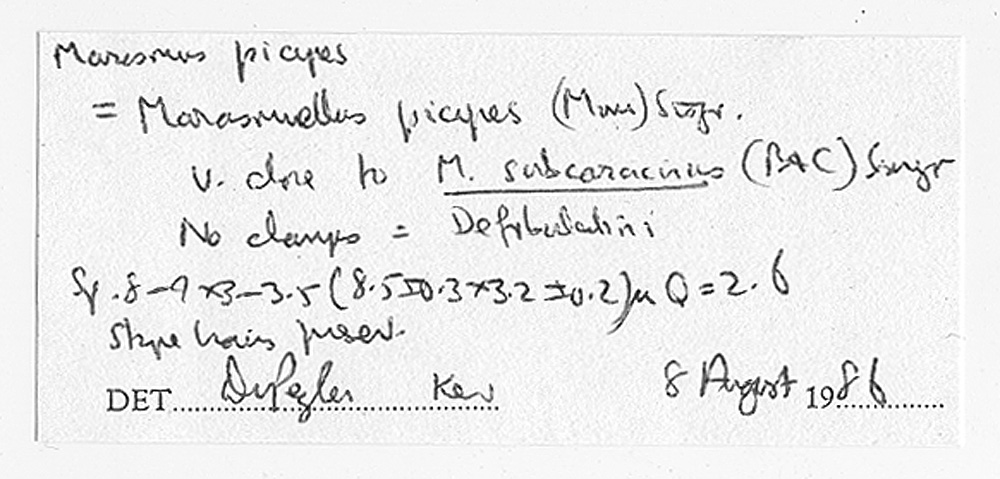 Marasmius picipes
= Marasmiellus picipes (Murr) Singr.
v. close to M. subcoracinus (B&C) Singr
No clamps = Defibulatini
Sp. 8-9 x 3-3.5 (8.5±0.3 x 3.2 ±0.2)µ Q = 2.6
Stipe hairs present.
DET. D N Pegler Kew 8 August 1986